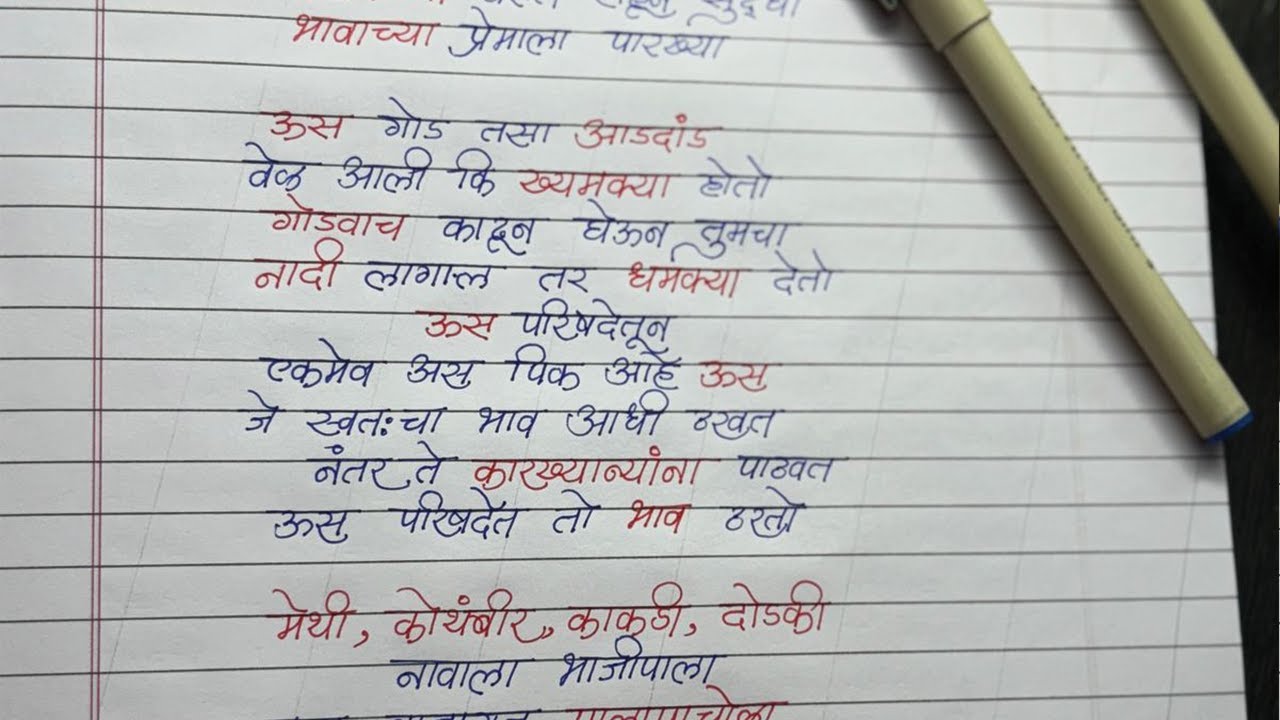 भावाच्या प्रेमाला पारख्या
ऊस गोड तसा आडदांड
वेळ आली कि ख्यमक्या होतो
गोडवाच काढून घेऊन तुमचा
नादी लागाल तर धमक्या देतो
ऊस परिषदेतून
एकमेव अस पिक आहे ऊस
जे स्वतःचा भाव आधी ठरवत
नंतर ते कारख्यान्यांना पाठवत
ऊस परिषदेत तो भाव ठरतो
मेथी, कोथंबीर, काकडी, दोडकी
नावाला भाजीपाला
पालापाचोळा